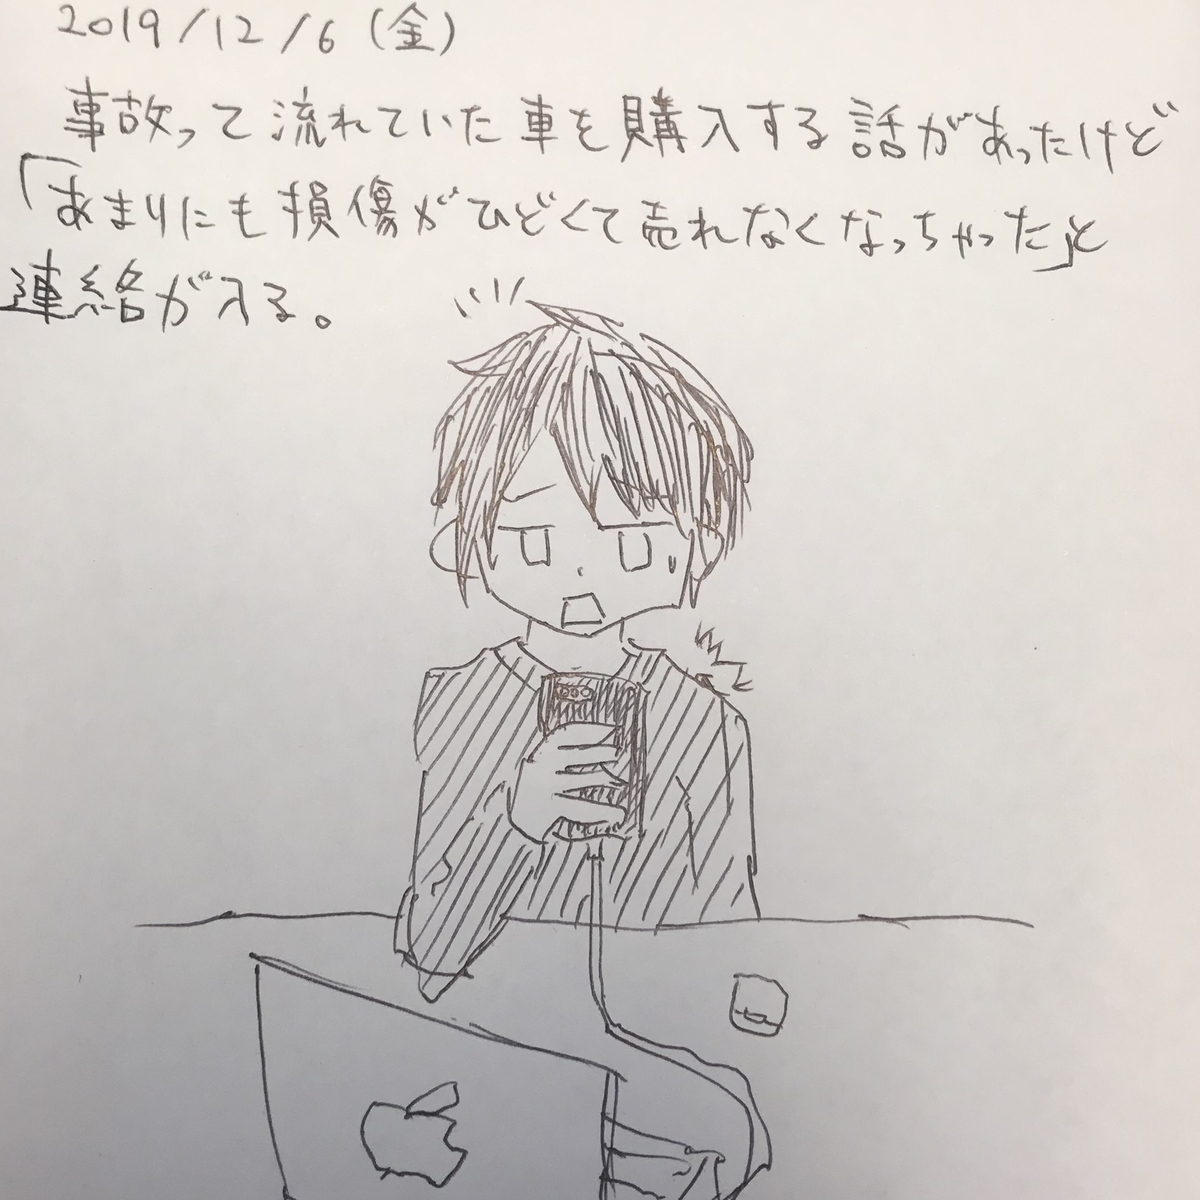 2019/12/6(金)
事故って流れていた車を購入する話があったけど
「あまりにも損傷がひどくて売れなくなっちゃった」と
連絡が入る。